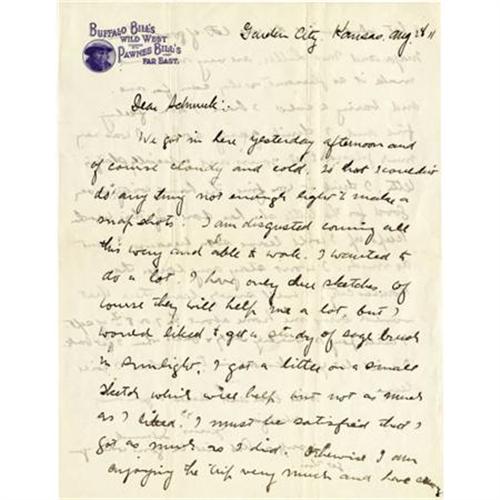 BUFFALO BILL'S
WILD WEST
PAWNEE BILL'S
FAR EAST.
Garden City Kansas, Aug. 28 11
Dear Schmuck:
We got in here yesterday afternoon and
of course cloudy and cold. So that I couldn't
do any thing not enough light to make a
snapshots. I am disgusted coming all
this way and able to work. I wanted to
do a lot. I have only three sketches. Of
course they will help me a lot, but I
would liked to get a study of sage brush
in sunlight. I got a little on a small
sketch which will help but not as much
as I liked. I must be satisfied that I
got as much as I did. Otherwise I am
enjoying the trip very much and have